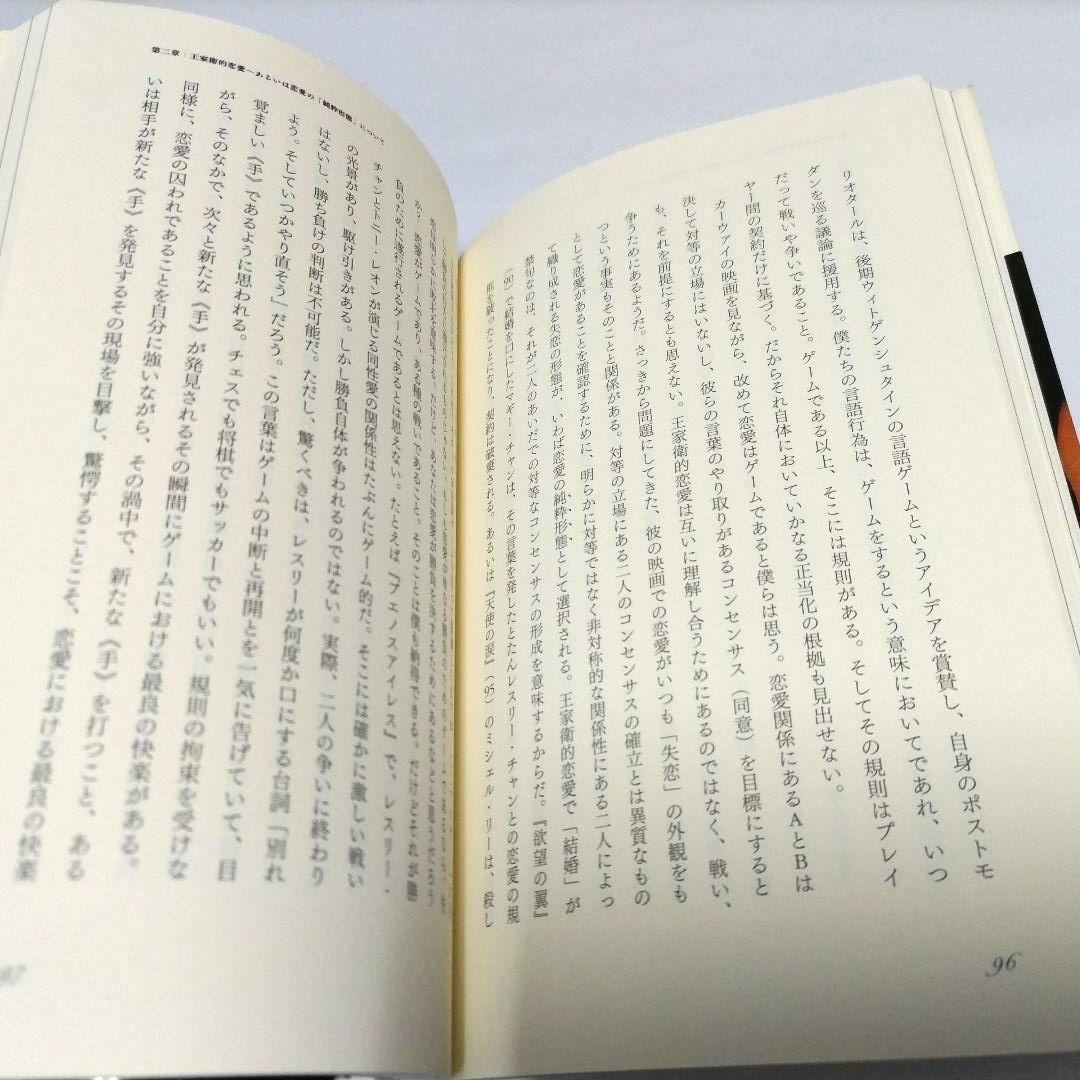 リオタールは、後期ウィトゲンシュタインの言語ゲームというアイデアを賞賛し、自身のポストモ
ダンを巡る議論に援用する。僕たちの言語行為は、ゲームをするという意味においてであれ、いつ
だって戦いや争いであること。ゲームである以上、そこには規則がある。そしてその規則はプレイ
ヤー間の契約だけに基づく。だからそれ自体においていかなる正当化の根拠も見出せない。
カーウァイの映画を見ながら、改めて恋愛はゲームであると僕らは思う。恋愛関係にあるAとBは
決して対等の立場にはいないし、彼らの言葉のやり取りがあるコンセンサス（同意）を目標にすると
も、それを前提にするとも思えない。王家衛的恋愛は互いに理解し合うためにあるのではなく、戦い、
争うためにあるようだ。さっきから問題にしてきた、彼の映画での恋愛がいつも「失恋」の外観をも
つという事実もそのことと関係がある。対等の立場にある二人のコンセンサスの確立とは異質なもの
として恋愛があることを確認するために、明らかに対等ではなく非対称的な関係性にある二人によっ
て織り成される失恋の形態が、いわば恋愛の純粋形態として選択される。王家衛的恋愛で「結婚」が
禁句なのは、それが二人のあいだでの対等なコンセンサスの形成を意味するからだ。『欲望の翼』
（90）で結婚を口にしたマギー・チャンは、その言葉を発したとたんレスリー・チャンとの恋愛の規
則を破ったことになり、契約は破棄される。あるいは『天使の涙』（95）のミシェル・リーは、殺し
96
第二章：王家衛的恋愛〜あるいは恋愛の「純粋形態」について
か？ 恋愛がゲームであり、ある種の戦いであること。そのことは僕も納得できる。だけどそれが勝
負のために遂行されるゲームであるとは思えない。たとえば『ブエノスアイレス』で、レスリー・
チャンとトニー・レオンが演じる同性愛の関係性はたぶんにゲーム的だ。そこには確かに激しい戦い
の光景があり、駆け引きがある。しかし勝負自体が争われるのではない。実際、二人の争いに終わり
はないし、勝ち負けの判断は不可能だ。ただし、驚くべきは、レスリーが何度か口にする台詞「別れ
よう。そしていつかやり直そう」だろう。この言葉はゲームの中断と再開とを一気に告げていて、目
覚ましい《手》であるように思われる。チェスでも将棋でもサッカーでもいい。規則の拘束を受けな
がら、そのなかで、次々と新たな《手》が発見されるその瞬間にゲームにおける最良の快楽がある。
同様に、恋愛の囚われであることを自分に強いながら、その渦中で、新たな《手》を打つこと、ある
いは相手が新たな《手》を発見するその現場を目撃し、驚愕することこそ、恋愛における最良の快楽
97